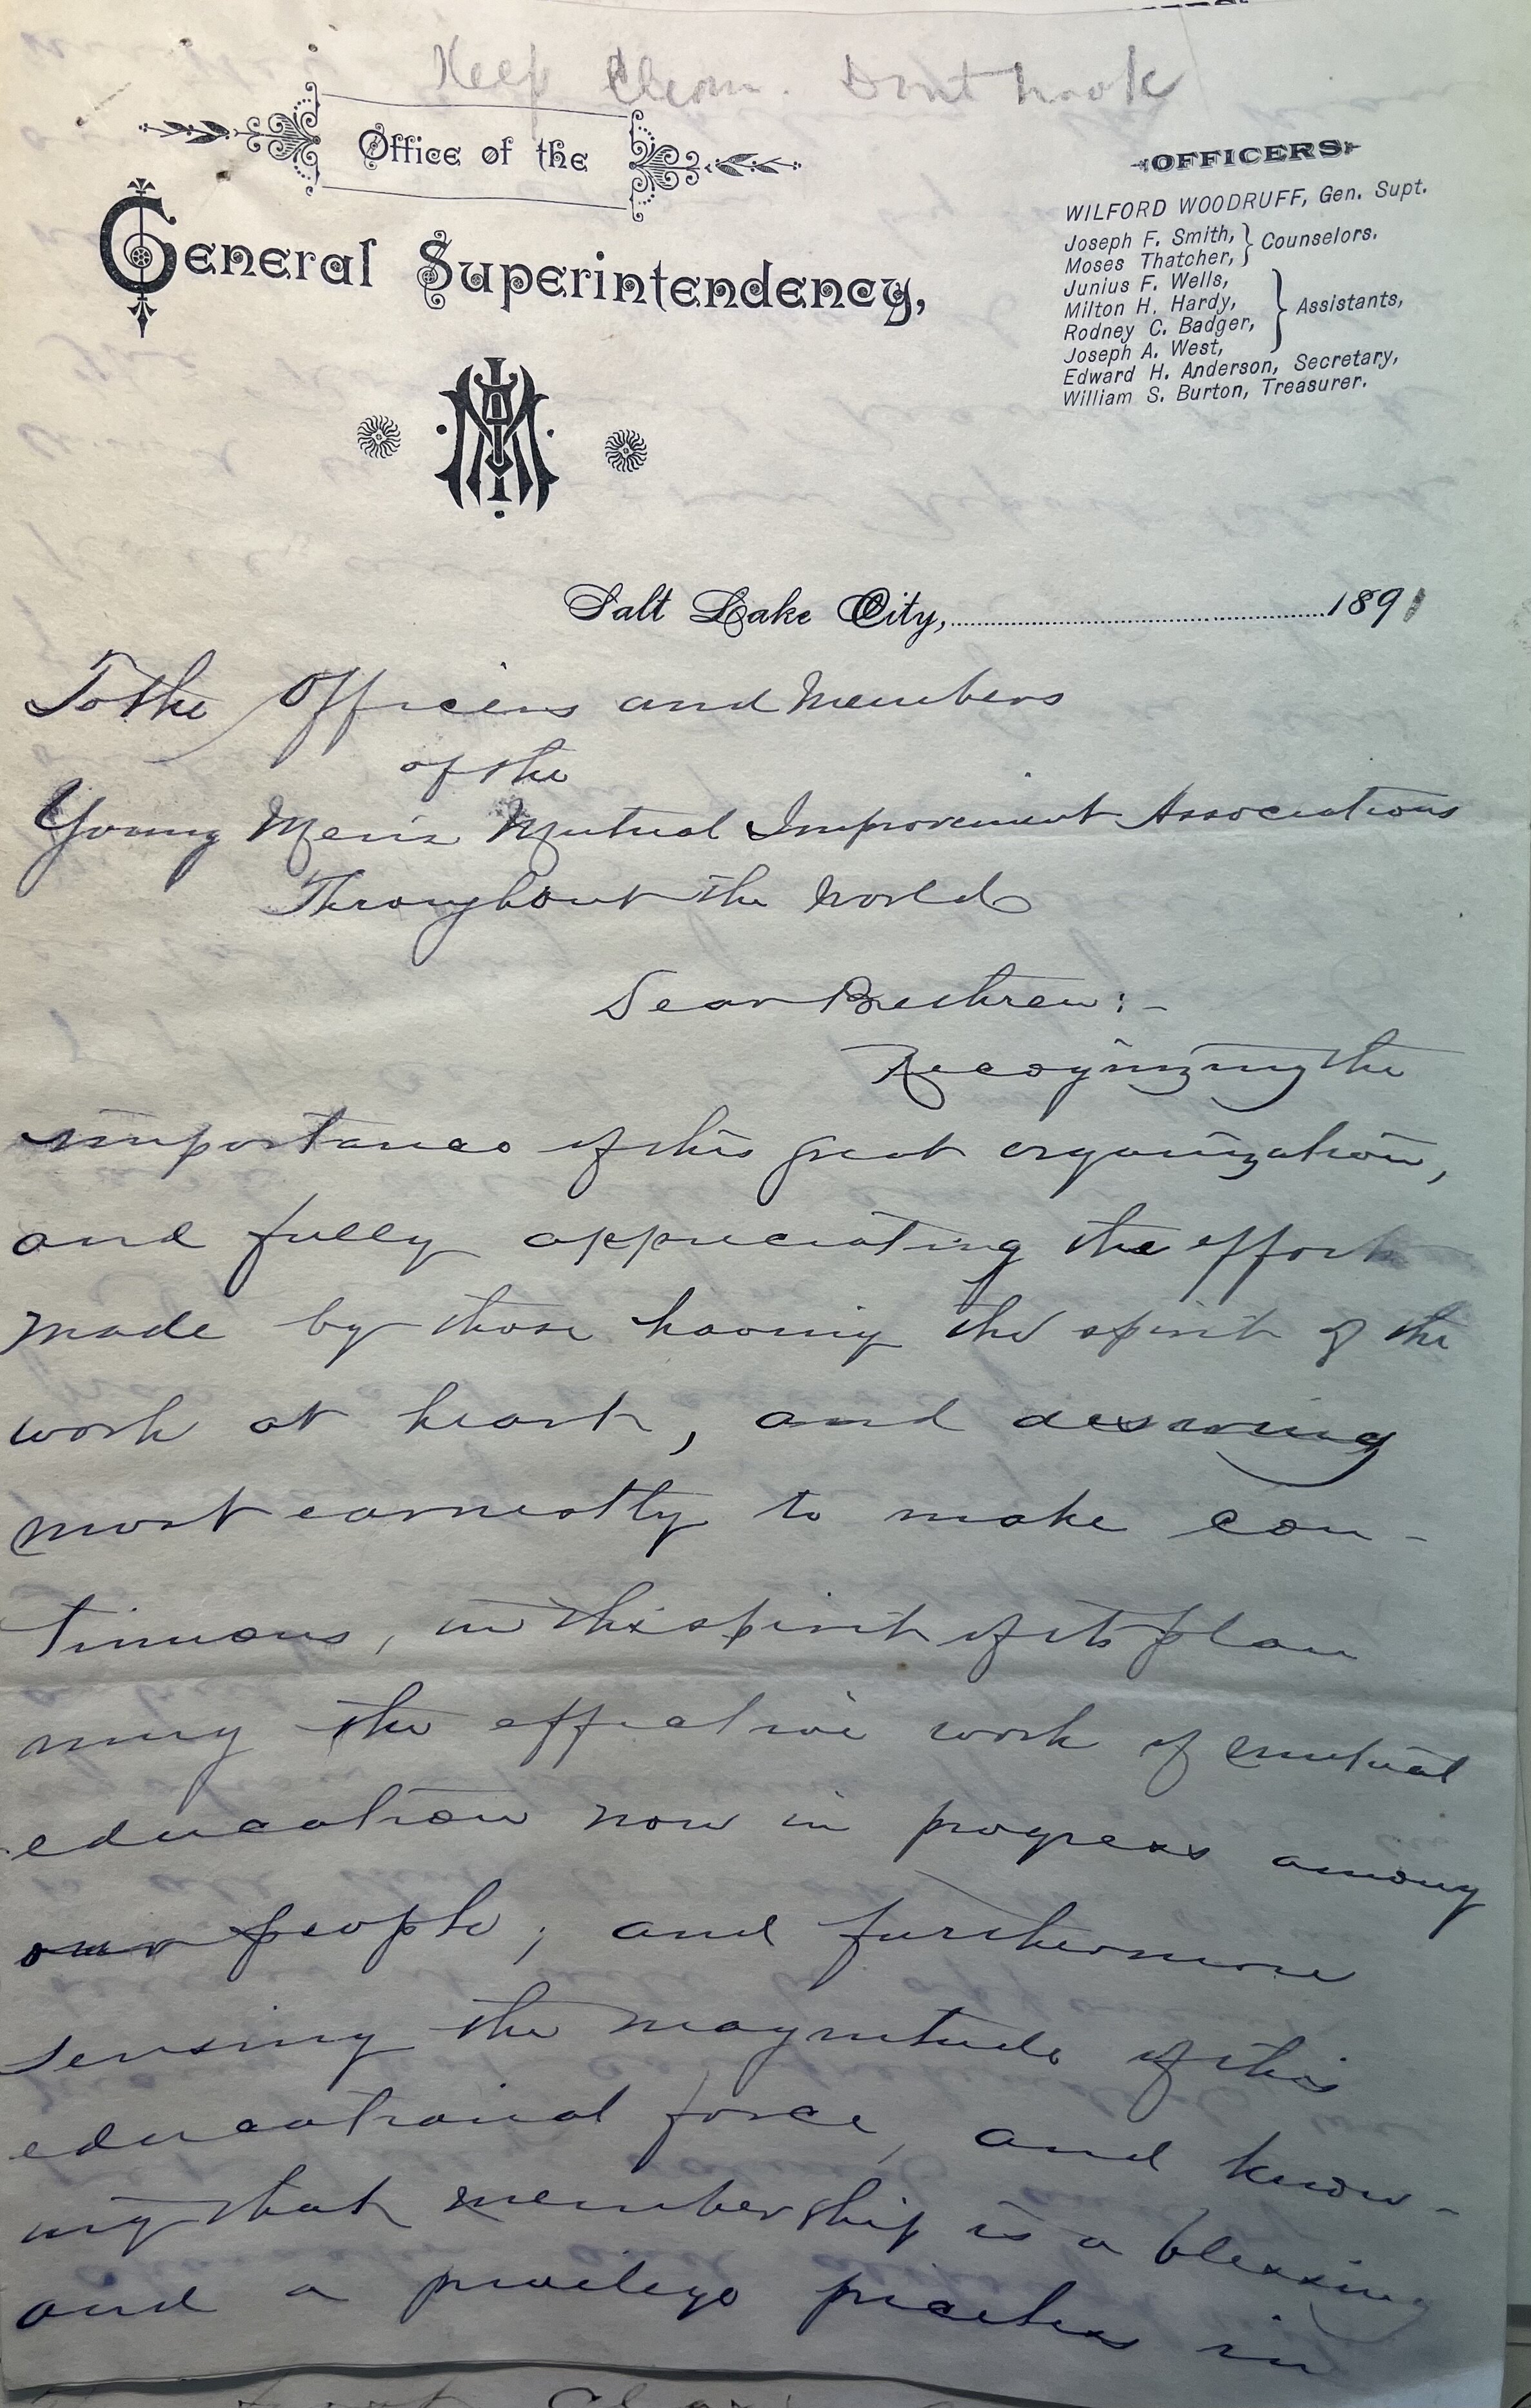 Keep Clean. Dont hook
Office of the
General Superintendency,
OFFICERS
WILFORD WOODRUFF, Gen. Supt.
Joseph F. Smith,
Moses Thatcher, } Counselors.
Junius F. Wells,
Milton H. Hardy,
Rodney C. Badger,
Joseph A. West, } Assistants,
Edward H. Anderson, Secretary,
William S. Burton, Treasurer.
YMMIA
Salt Lake City, 1891
To the Officers and Members
of the
Young Men's Mutual Improvement Associations
Throughout the World
Dear Brethren:-
Recognizing the
importance of this great organization,
and fully appreciating the efforts
made by those having the spirit of the
work at heart, and desiring
most earnestly to make con-
tinuous, in the spirit of its plan
ning the effective work of mutual
education now in progress among
our people; and furthermore
sensing the magnitude of this
educational force, and know-
ing that membership is a blessing
and a privilege priceless in